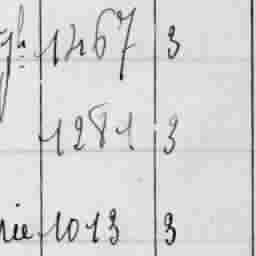 gh. 1267 3
1281 3
rie 1013 3